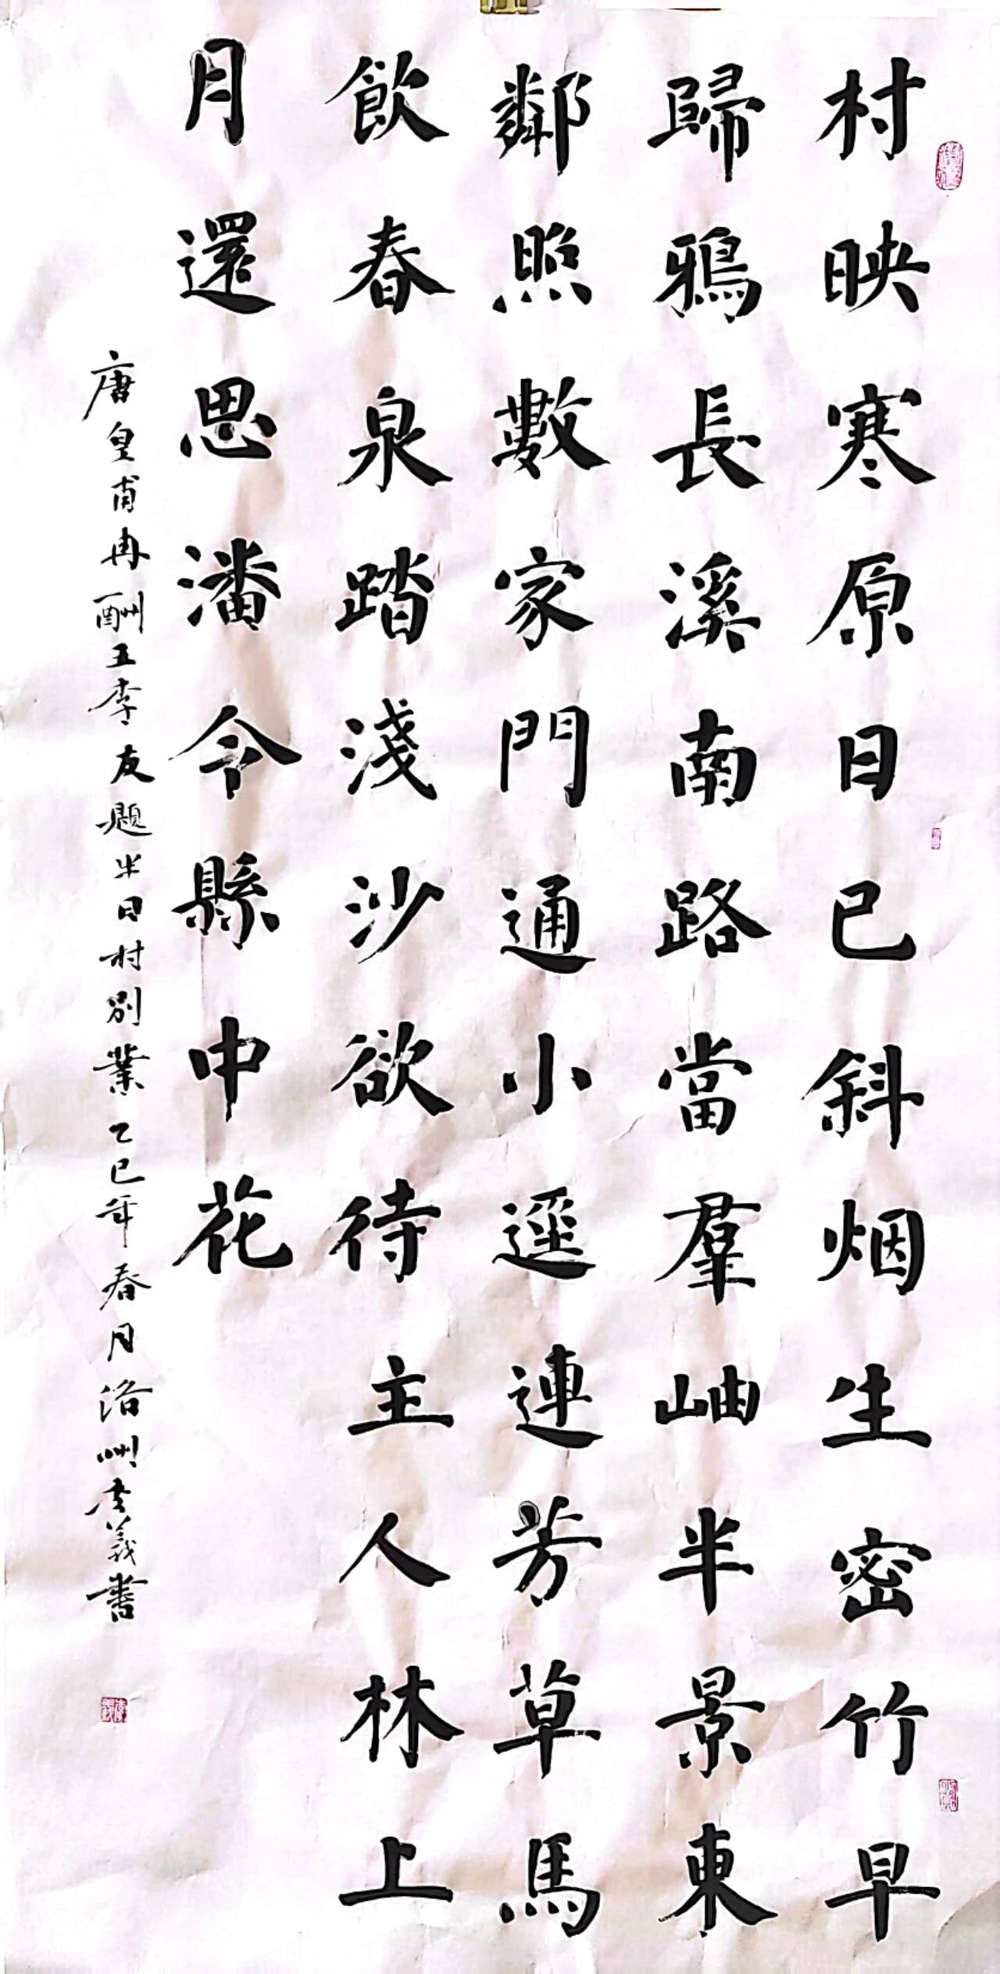 村映寒原日已斜烟生密竹早
歸鴉長溪南路當羣岫半景東
鄰照數家門通小逕連芳草馬
飲春泉踏淺沙欲待主人林上
月還思潘令縣中花
唐皇甫冉酬五李友題半日村別業乙巳年春月洛州李義書